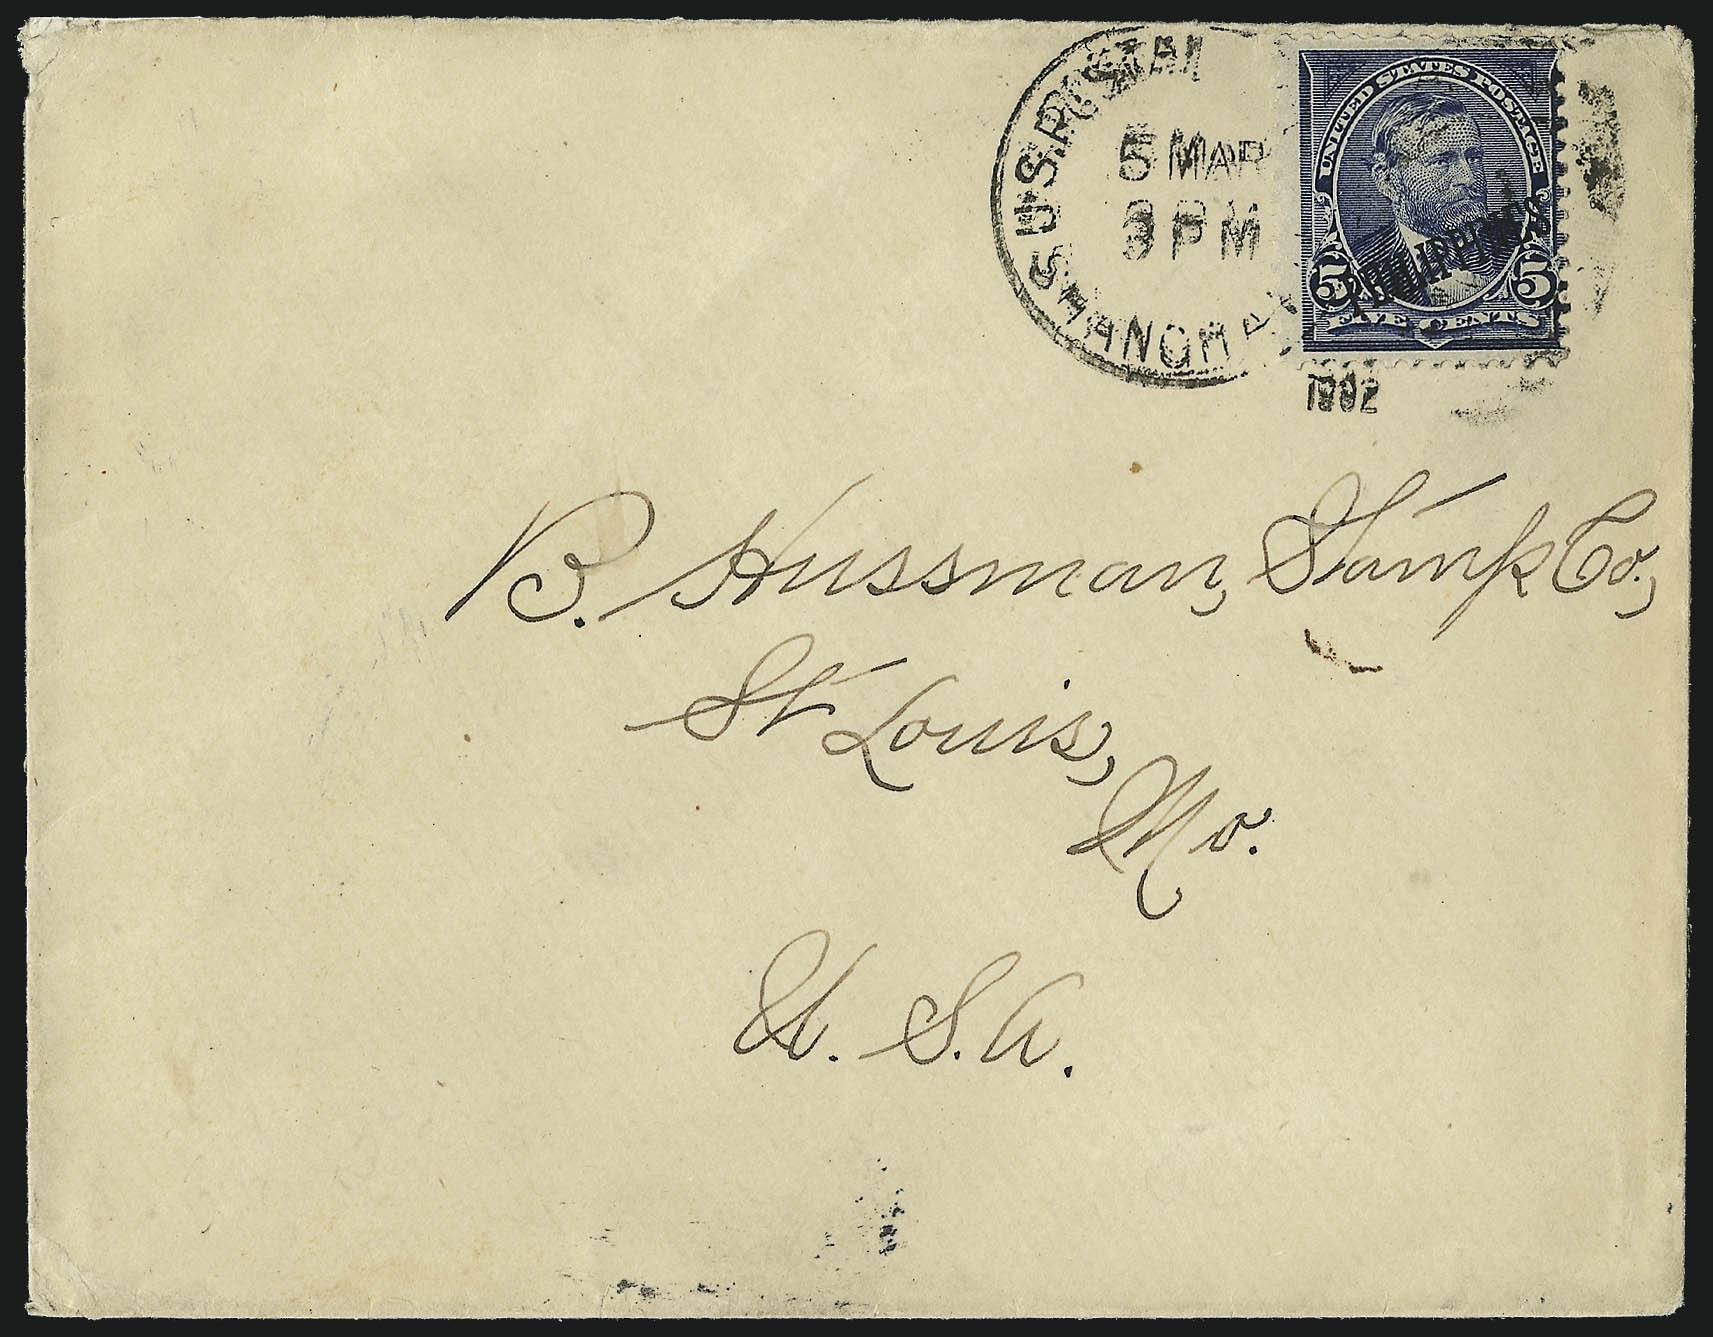 U.S. POSTAL
5 MAR
3 PM
SHANGHA
1902
UNITED STATES POSTAGE
PHILIPPINES
5 5
FIVE CENTS
B. Hussman, Stamp Co.,
St Louis,
Mo.
U. S. A.